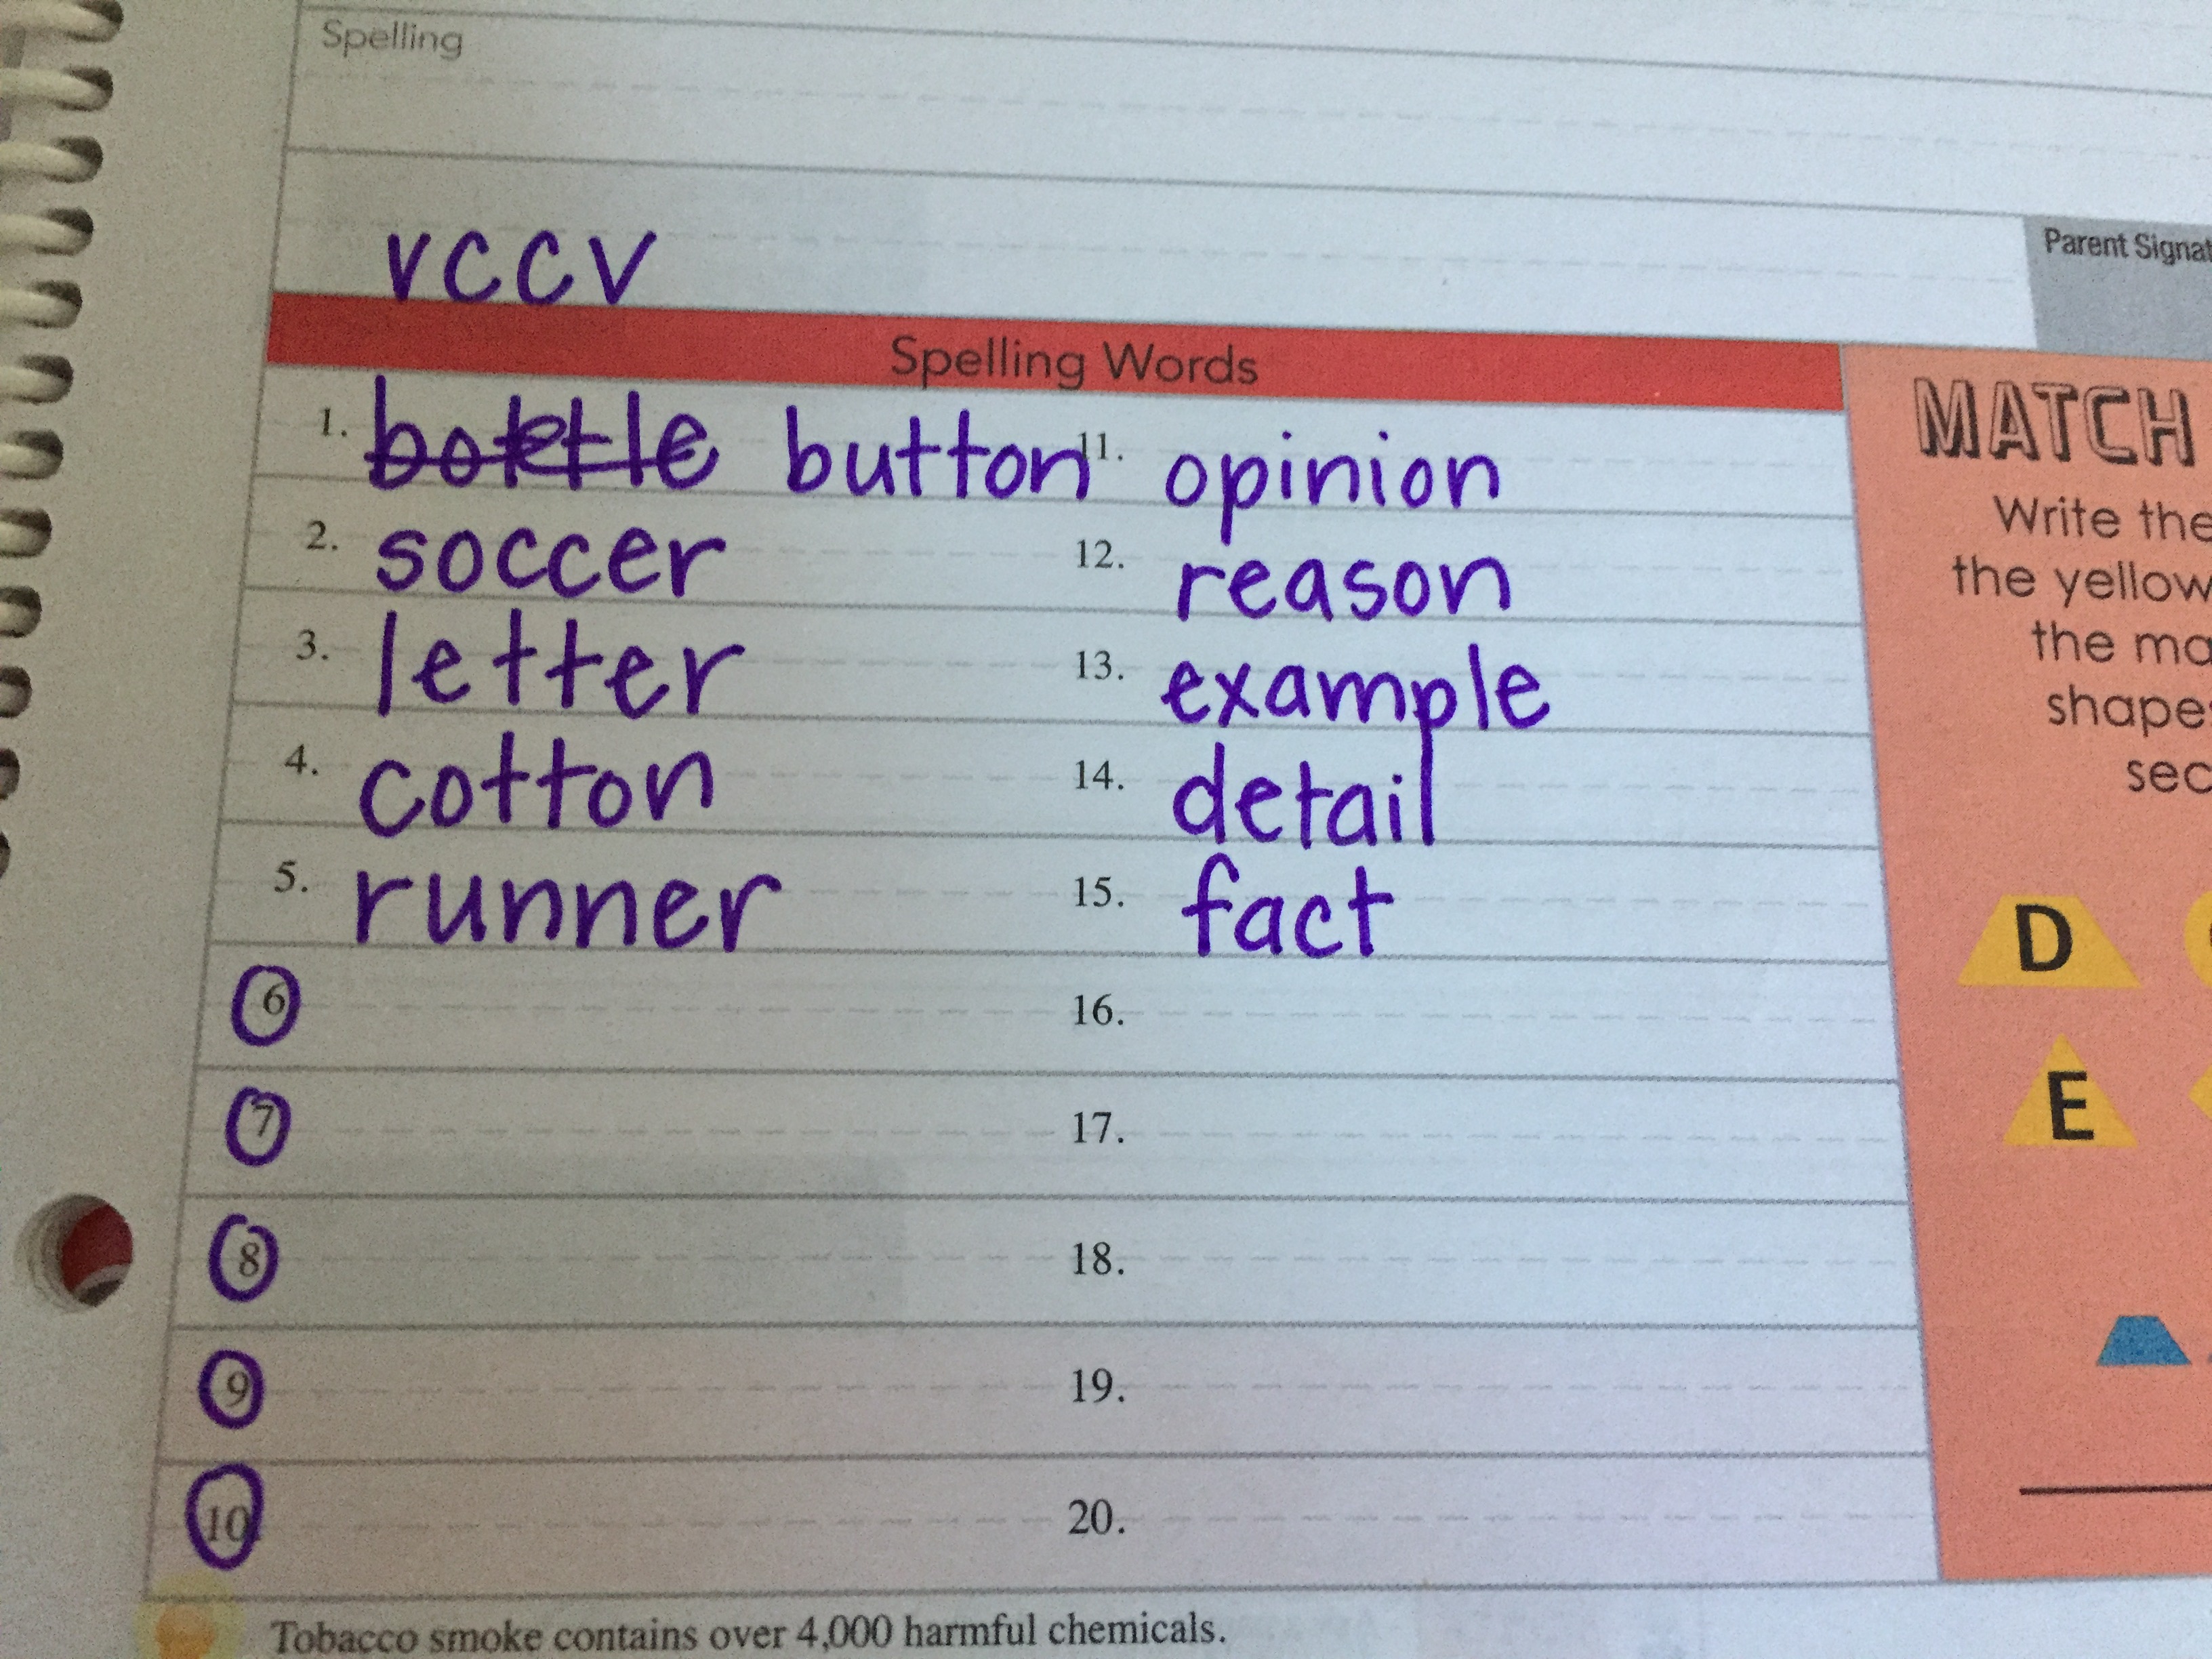 Spelling
vccv
Parent Signat
Spelling Words
1. bottle button
2. soccer
3. letter
4. cotton
5. runner
6
7
8
9
10.
11. opinion
12. reason
13. example
14. detail
15. fact
16.
17.
18.
19.
20.
MATCH
Write the
the yellow
the ma
shape
sec
D
E
Tobacco smoke contains over 4,000 harmful chemicals.